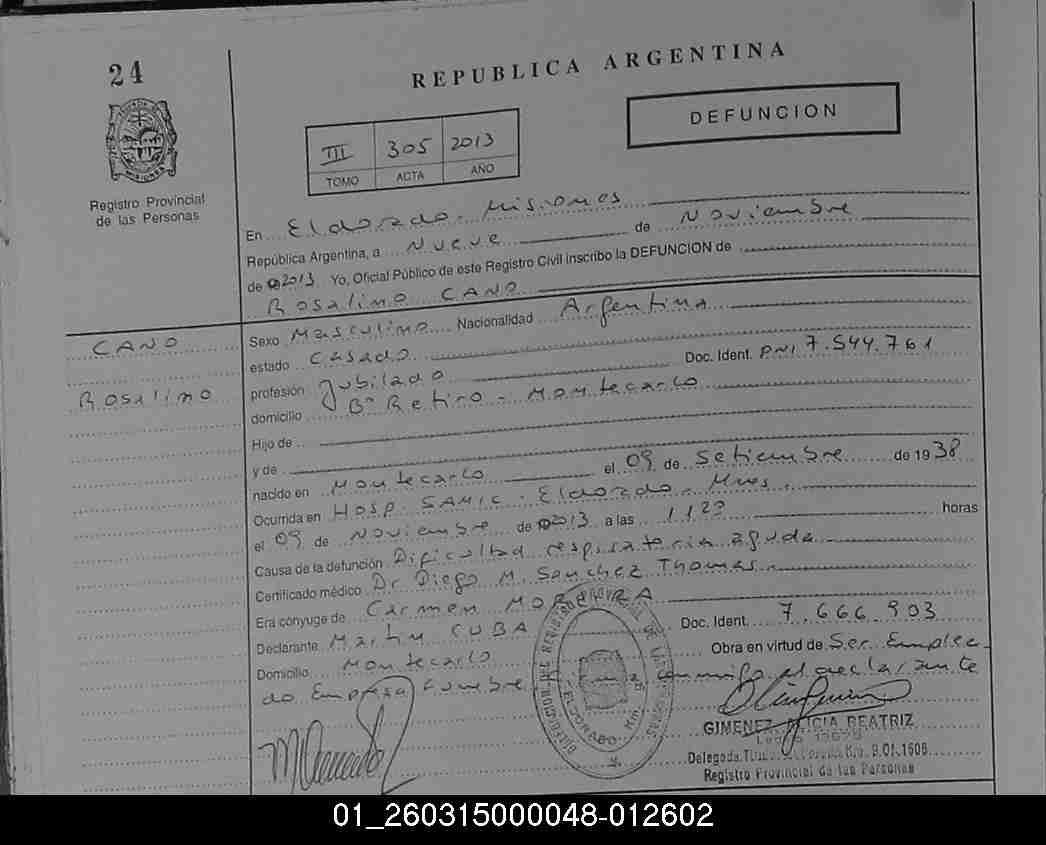 24
REPUBLICA ARGENTINA
DEFUNCION
III 305 2013
TOMO ACTA AÑO
Registro Provincial
de las Personas
En Eldorado. Misiones
República Argentina, a Nueve de Noviembre
de 2013 Yo, Oficial Público de este Registro Civil inscribo la DEFUNCION de
Rosalino CANO
CANO
Rosalino
Sexo Masculino Nacionalidad Argentina
estado Casado
profesión Jubilado Doc. Ident. DNI 7.544.761
domicilio Bº Retiro - Montecarlo
Hijo de
y de
nacido en Montecarlo el 09 de Setiembre de 1938
Ocurrida en Hosp. SAMIC. Eldorado. Mnes.
el 09 de Noviembre de 2013 a las horas
Causa de la defunción Dificultad respiratoria aguda
Certificado médico Dr Diego M. Sanchez Thomas
Era cónyuge de Carmen MOREYRA
Declarante CUBA Doc. Ident. 7.666.903
Domicilio Montecarlo Obra en virtud de Ser Emplea
do Empresa Funebre Firma conmigo el declarante
GIMENEZ ALICIA BEATRIZ
Registro Provincial de las Personas
01_260315000048-012602